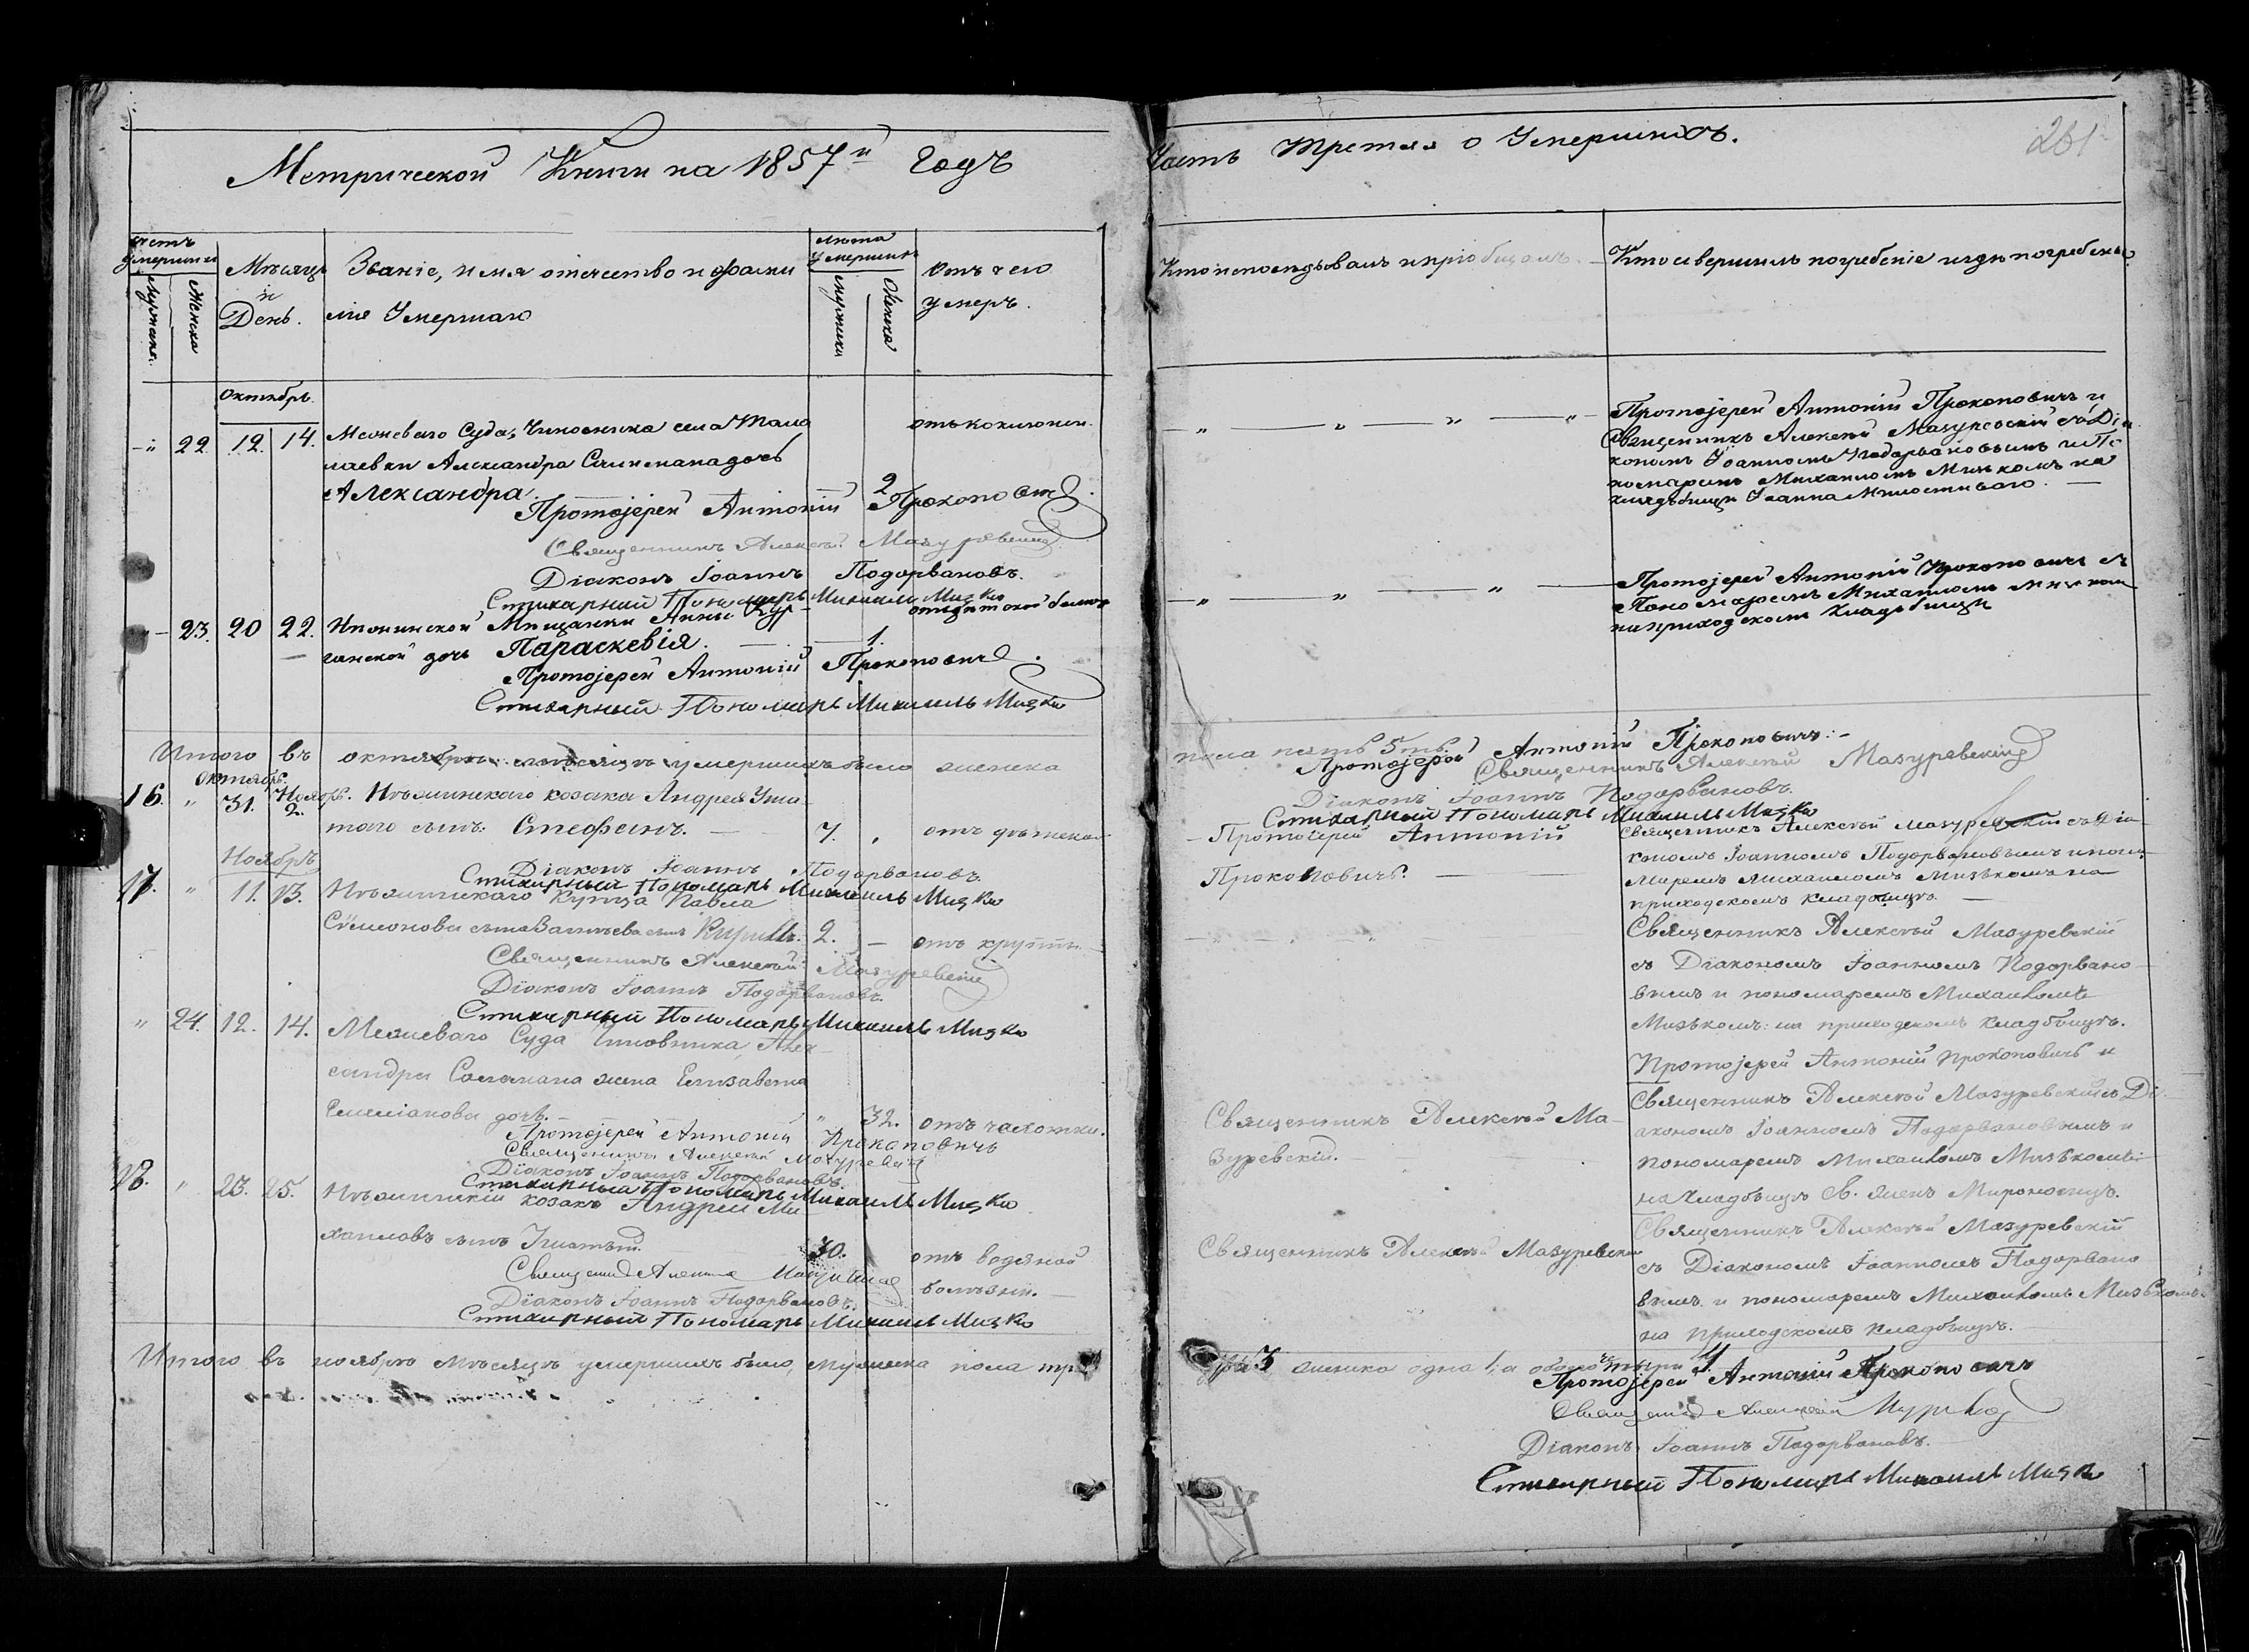 Метрической Книги на 1857й Годъ
Часть Третяя о Умершихъ.
261
Счетъ Умершихъ
Мужеска.
Женска
Мѣсяцъ
и
День.
Званіе, имя отечество и фами
лія Умершаго
лѣта Умершихъ
мужеска
Женска
Отъ чего
умеръ.
Кто исповѣдывалъ и пріобщалъ.
Кто совершилъ погребеніе и гдѣ погребены
Октябрь
22 12. 14. Межеваго Суда, Чиновника
Александра дочь
Александра. 2
Протоіерей Антоній Прокоповичъ
Священникъ Алексѣй Мазуревскій
Діаконъ Іоаннъ Подорвановъ.
Стихарный Пономарь Михаилъ Мизко
Протоіерей Антоній Прокоповичъ и
Священникъ Алексѣй Мазуревскій съ Діа
кономъ Іоанномъ Подорвановымъ и По
номаремъ Михаиломъ Мизькомъ на
кладбищѣ Іоанна Милостиваго.
23. 20 22. Мѣщанки Анны
дочь Параскевія. 1.
Протоіерей Антоній Прокоповичъ.
Стихарный Пономарь Михаилъ Мизко
Протоіерей Антоній Прокоповичъ съ
Пономаремъ Михаиломъ Мизькомъ
на приходскомъ кладбищѣ
Итого въ октябрѣ мѣсяцѣ умершихъ было женска
пола пять 5ть.
Протоіерей Антоній Прокоповичъ
Священникъ Алексѣй Мазуревскій
Діаконъ Іоаннъ Подорвановъ.
Стихарный Пономарь Михаилъ Мизко
Октябр.
16. " 31. Ноябр. 2. Нѣжинскаго козака Андрея
сынъ Стефанъ. 7. отъ
Протоіерей Антоній
Прокоповичъ.
Священникъ Алексѣй Мазуревскій съ Діа
кономъ Іоанномъ Подорвановымъ и поно
маремъ Михаиломъ Мизькомъ на
приходскомъ кладбищѣ.
Діаконъ Іоаннъ Подорвановъ.
Стихарный Пономарь Михаилъ Мизко
Ноябрь
17. " 11. 13. Нѣжинскаго Купца Павла
Симеонова сына сынъ Кириллъ. 2. — отъ крупы
Священникъ Алексѣй Мазуревскій
Діаконъ Іоаннъ Подорвановъ.
Стихарный Пономарь Михаилъ Мизко
Священникъ Алексѣй Мазуревскій
съ Діакономъ Іоанномъ Подорвано
вымъ и пономаремъ Михаиломъ
Мизькомъ на приходскомъ кладбищѣ.
" 24. 12. 14. Межеваго Суда Чиновника Алек
сандра жена Елизавета
Емеліанова дочь. " 32. отъ чахотки.
Протоіерей Антоній Прокоповичъ
Священникъ Алексѣй Мазуревскій
Діаконъ Іоаннъ Подорвановъ.
Стихарный Пономарь Михаилъ Мизко
Священникъ Алексѣй Ма
зуревскій.
Протоіерей Антоній Прокоповичъ и
Священникъ Алексѣй Мазуревскій съ Ді
акономъ Іоанномъ Подорвановымъ и
пономаремъ Михаиломъ Мизькомъ
на кладбищѣ Св. женъ Мироносицъ.
18. " 23. 25. Нѣжинскій козакъ Андрей Ми
хаиловъ сынъ 30. отъ водяной
болѣзни.
Діаконъ Іоаннъ Подорвановъ.
Стихарный Пономарь Михаилъ Мизко
Священникъ Алексѣй Мазуревскій
Священникъ Алексѣй Мазуревскій
съ Діакономъ Іоанномъ Подорвано
вымъ и пономаремъ Михаиломъ Мизькомъ
на приходскомъ кладбищѣ.
Итого въ ноябрѣ мѣсяцѣ умершихъ было, мужеска пола три
3 женска одна 1, а обоего четыри 4.
Протоіерей Антоній Прокоповичъ
Священникъ Алексѣй
Діаконъ Іоаннъ Подорвановъ.
Стихарный Пономарь Михаилъ Мизко